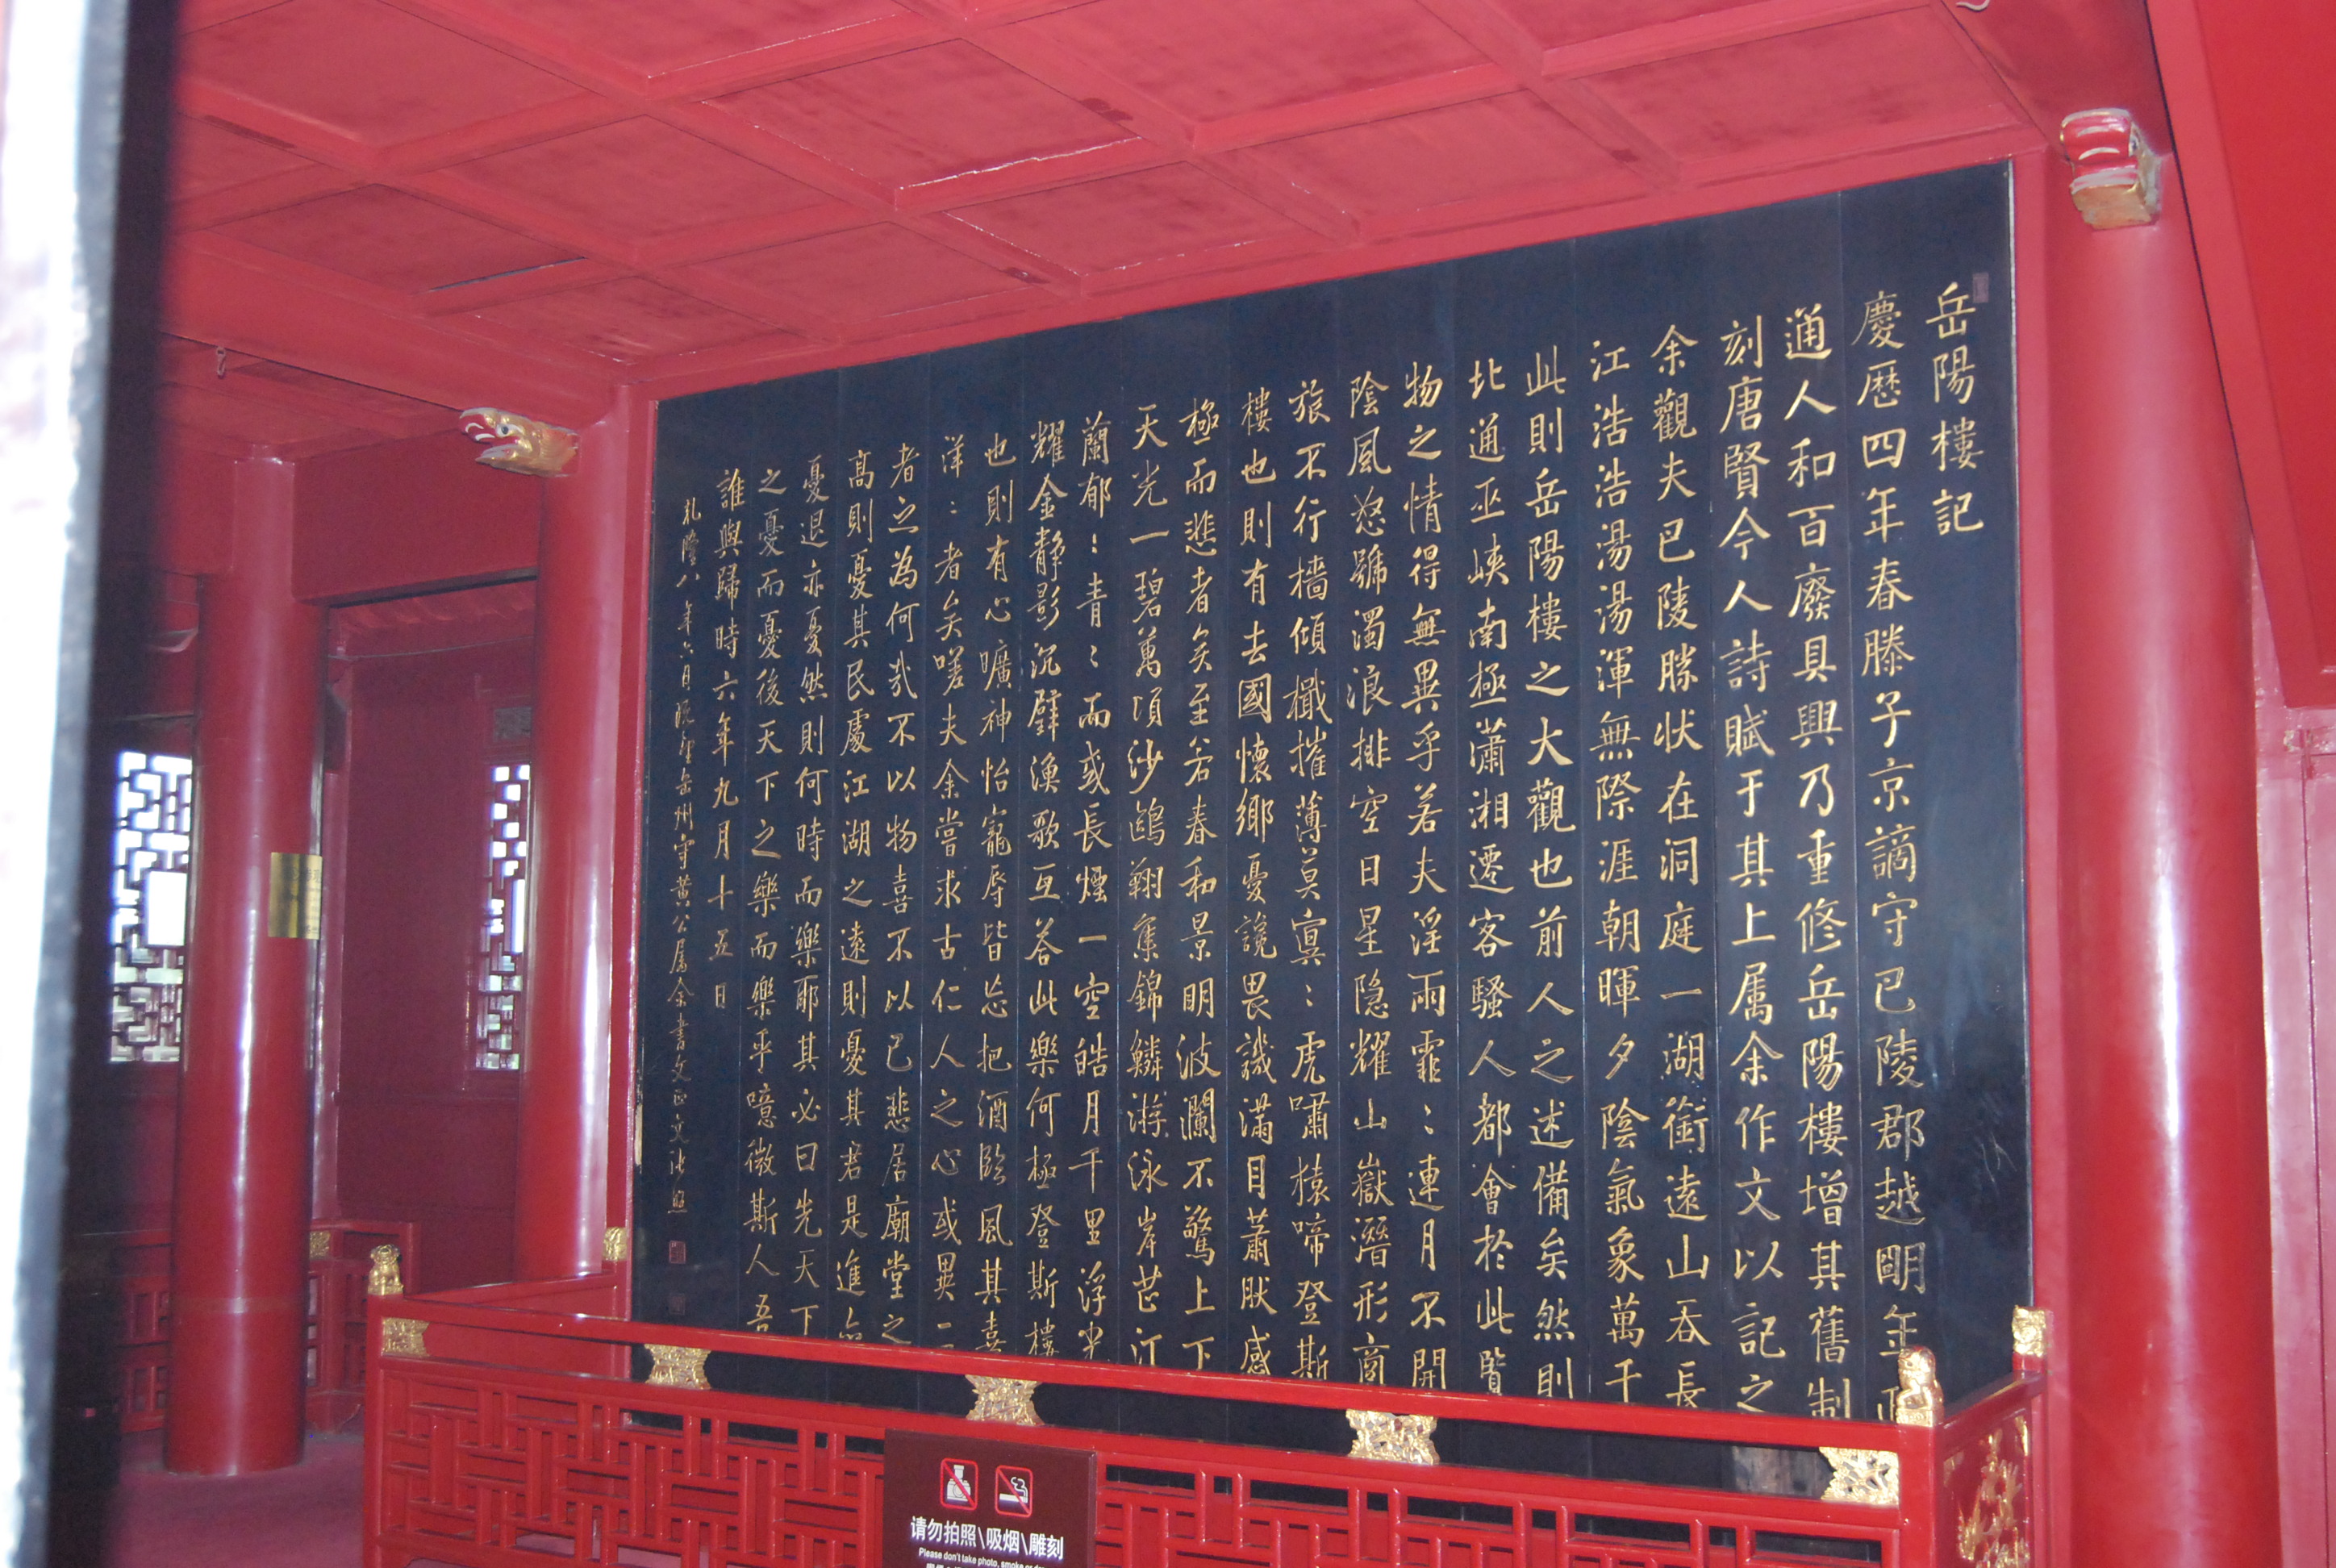 岳陽樓記
慶歷四年春滕子京謫守巴陵郡越明年政
通人和百廢具興乃重修岳陽樓增其舊制
刻唐賢今人詩賦于其上属余作文以記之
余觀夫巴陵勝狀在洞庭一湖銜遠山吞長
江浩浩湯湯渾無際涯朝暉夕陰氣象萬千
此則岳陽樓之大觀也前人之述備矣然則
北通巫峽南極瀟湘遷客騷人都會於此覽
物之情得無異乎若夫淫雨霏:連月不開
陰風怒號濁浪排空日星隱耀山嶽潛形商
旅不行檣傾檝摧薄莫冥:虎嘯猿啼登斯
樓也則有去國懷鄉憂讒畏譏滿目蕭然感
極而悲者矣至若春和景明波瀾不驚上下
天光一碧萬頃沙鷗翔集錦鱗游泳岸芷汀
蘭郁:青:而或長煙一空皓月千里浮光
耀金靜影沉璧漁歌互答此樂何極登斯樓
也則有心曠神怡寵辱皆忘把酒臨風其喜
洋:者矣嗟夫余嘗求古仁人之心或異二
者之為何哉不以物喜不以己悲居廟堂之
高則憂其民處江湖之遠則憂其君是進亦
憂退亦憂然則何時而樂耶其必曰先天下
之憂而憂後天下之樂而樂乎噫微斯人吾
誰與歸時六年九月十五日
乾隆八年六月既望岳州守黃公属余書文正文張照
请勿拍照\吸烟\雕刻
Please don't take photo, smoke or